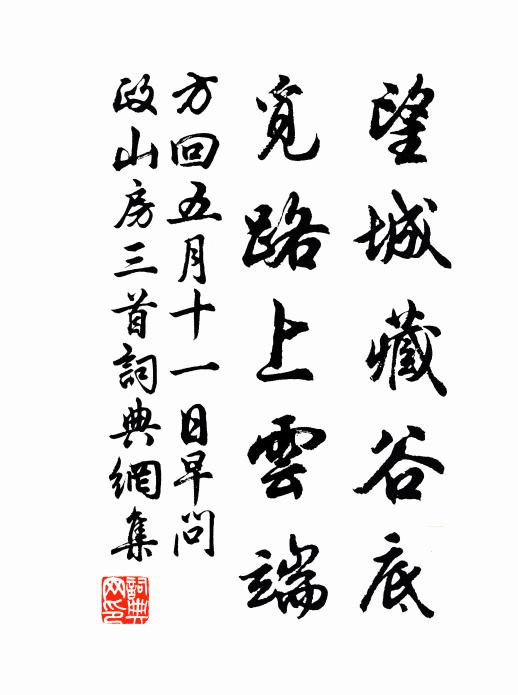 望城藏谷底
覓路上雲端
方回五月十一日早問
政山房三首詞典網集
詞典網印